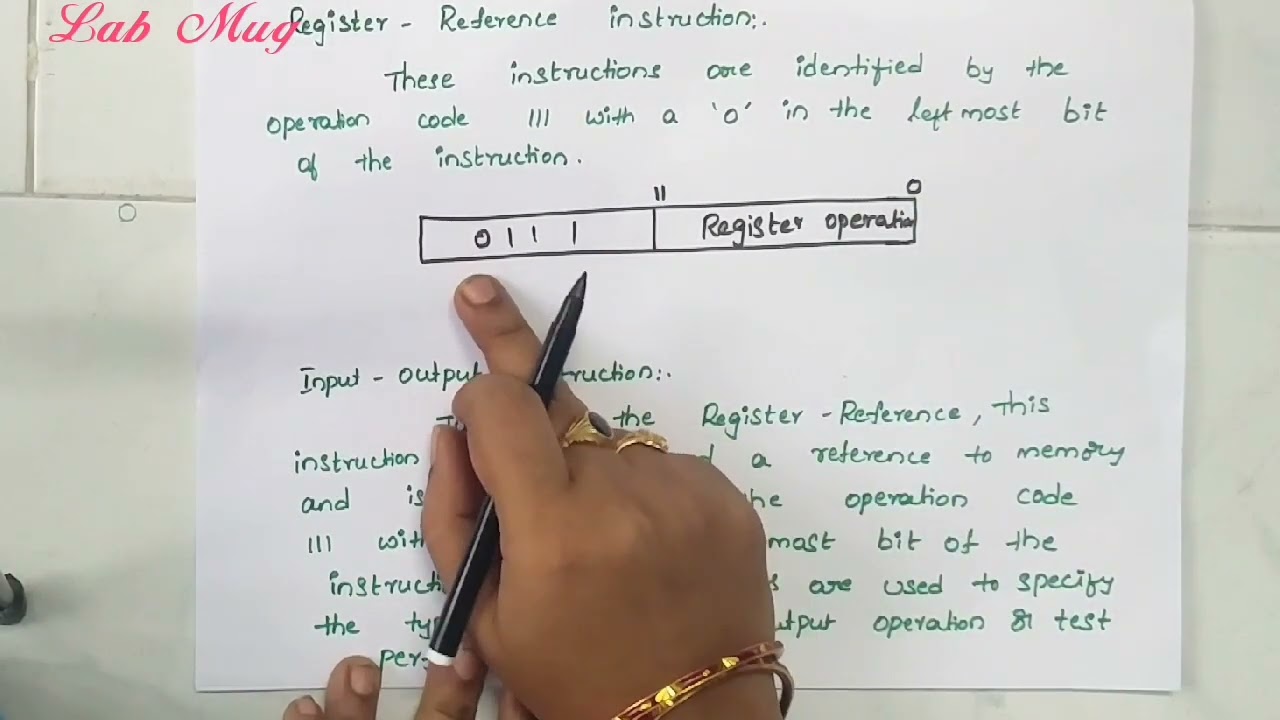 Lab Mug
Register - Reference instruction:.
These instructions are identified by the
operation code 111 with a '0' in the left most bit
of the instruction.
11 0
0 1 1 1 Register operation
Input - output :.
the Register - Reference, this
instruction a reference to memory
and is operation code
111 most bit of the
are used to specify
the operation & test